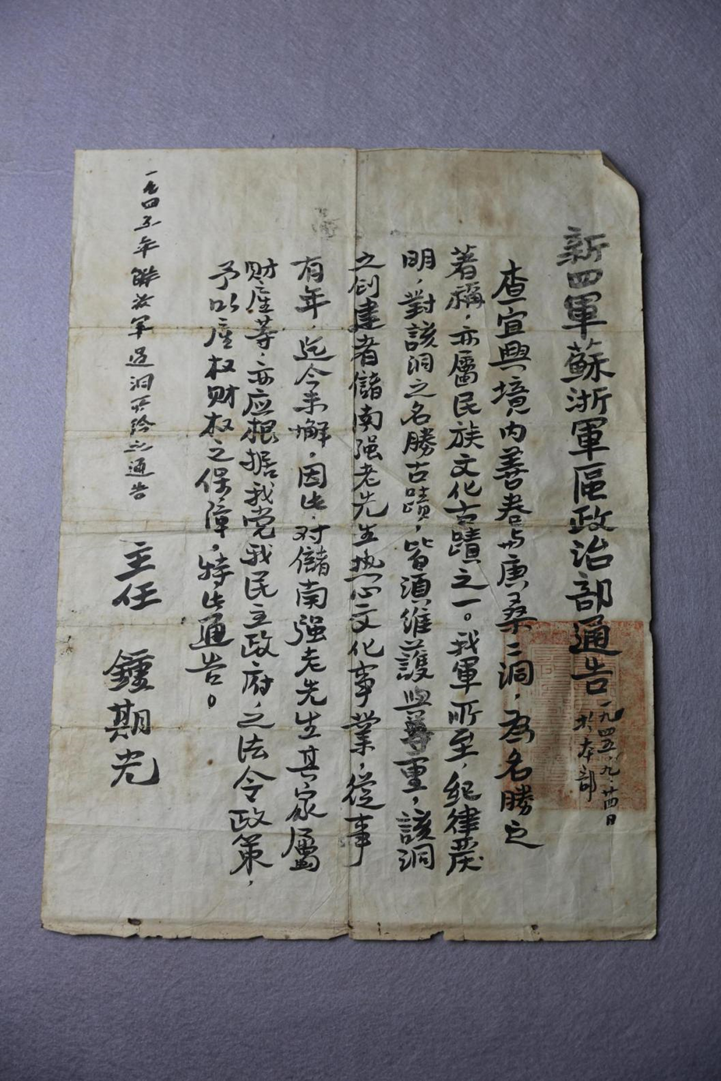 新四軍蘇浙軍區政治部通告
一九四五.九.廿四日
於本部
查宜興境内善卷与庚桑二洞，為名勝之
著稱，亦屬民族文化古蹟之一。我軍所至，紀律嚴
明，對該洞之名勝古蹟，皆須維護與尊重，該洞
之创建者儲南强老先生热心文化事業，從事
有年，迄今未懈，因此，对儲南强老先生其家屬
财産等，亦应根据我党我民主政府，之法令政策，
予以産权财权之保障，特此通告。
主任 鍾期光
一九四五年 軍過洞所给之通告